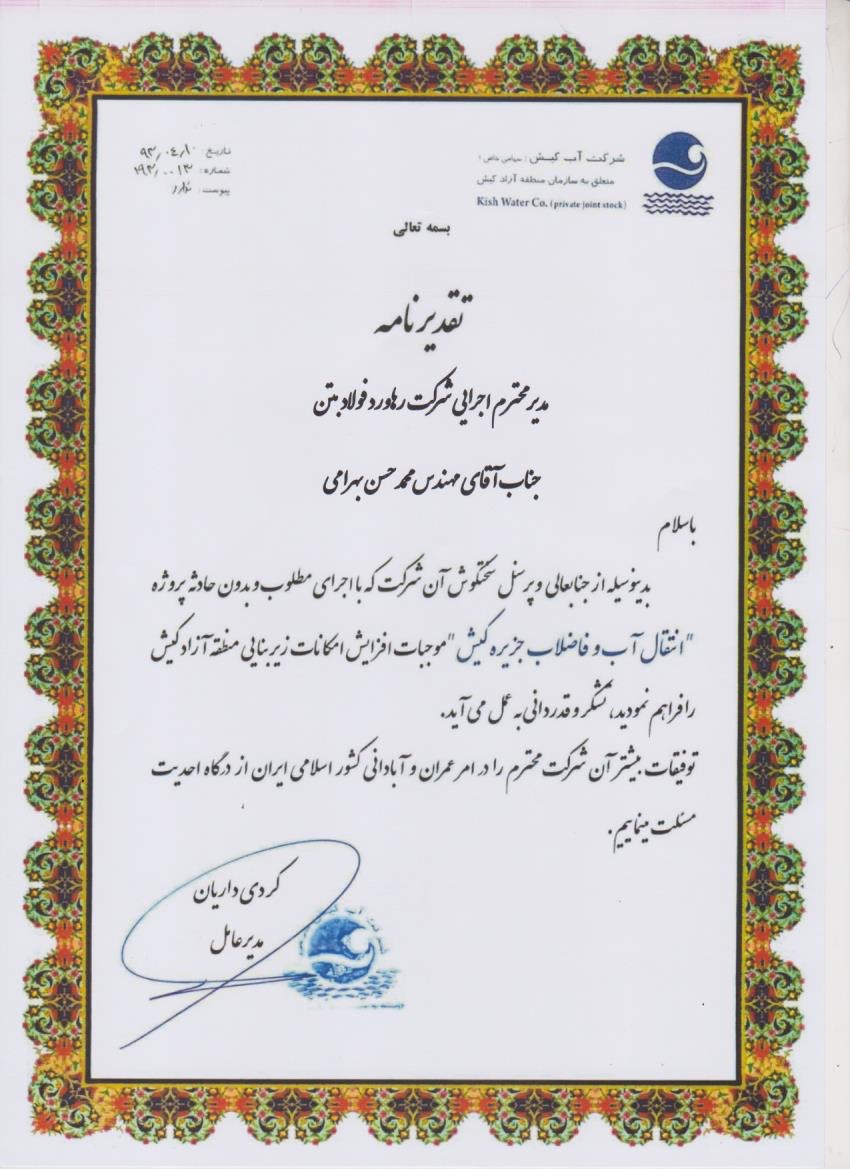 شرکت آب کیش (سهامی خاص)
متعلق به سازمان منطقه آزاد کیش
Kish Water Co. (private joint stock)
تاریخ: ۹۳/۰۴/۱۰
شماره:
پیوست: ندارد
بسمه تعالی
تقدیرنامه
مدیر محترم اجرایی شرکت رهاورد فولاد بتن
جناب آقای مهندس محمد حسن بهرامی
باسلام
بدینوسیله از جنابعالی و پرسنل سختکوش آن شرکت که با اجرای مطلوب و بدون حادثه پروژه
"انتقال آب و فاضلاب جزیره کیش" موجبات افزایش امکانات زیربنایی منطقه آزاد کیش
را فراهم نمودید، تشکر و قدردانی به عمل می آید.
توفیقات بیشتر آن شرکت محترم را در امر عمران و آبادانی کشور اسلامی ایران از درگاه احدیت
مسئلت مینماییم.
کردی داریان
مدیرعامل